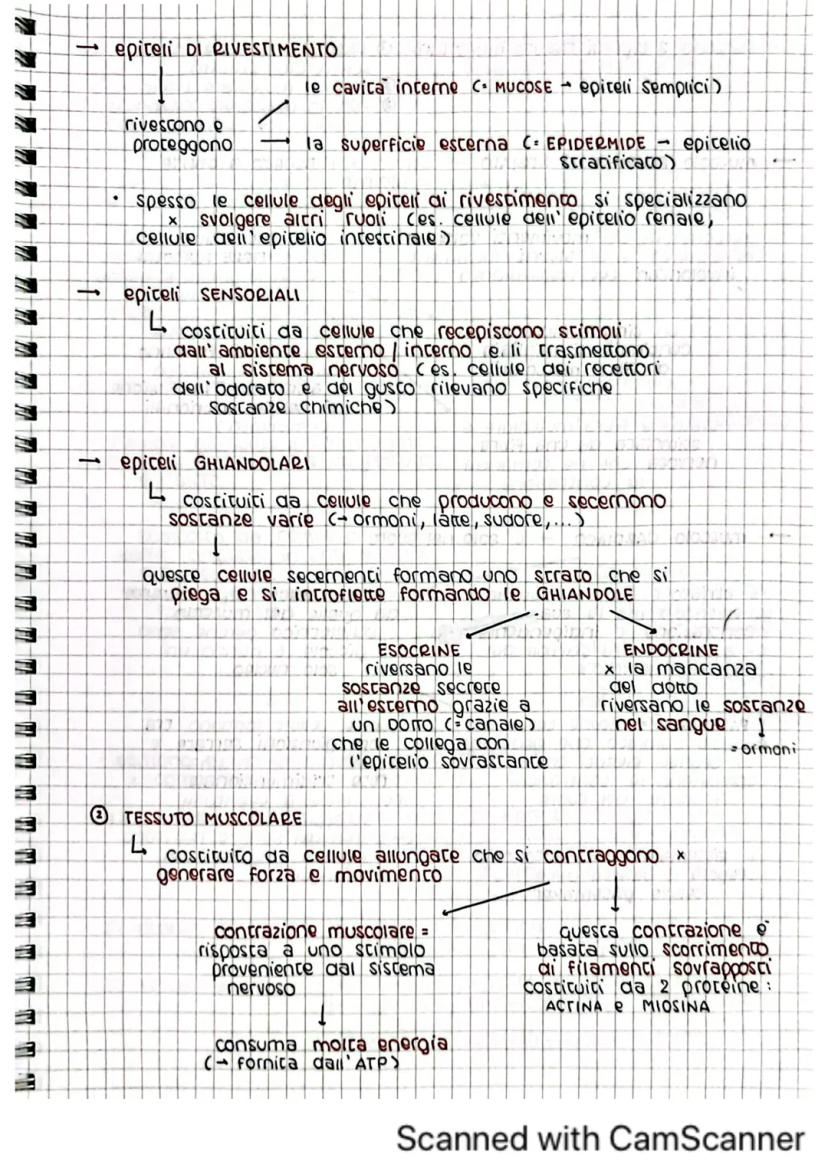 → epiteli DI RIVESTIMENTO
le cavità interne (= MUCOSE → epiteli semplici)
rivestono e
proteggono → la superficie esterna (= EPIDERMIDE → epitelio
stratificato)
• spesso le cellule degli epiteli di rivestimento si specializzano
x svolgere altri ruoli (es. cellule dell'epitelio renale,
cellule dell'epitelio intestinale)
→ epiteli SENSORIALI
↳ costituiti da cellule che recepiscono stimoli
dall'ambiente esterno / interno e li trasmettono
al sistema nervoso (es. cellule dei recettori
dell'odorato e del gusto rilevano specifiche
sostanze chimiche)
→ epiteli GHIANDOLARI
↳ costituiti da cellule che producono e secernono
sostanze varie (→ ormoni, latte, sudore,...)
↓
queste cellule secernenti formano uno strato che si
piega e si introflette formando le GHIANDOLE
ESOCRINE
riversano le
sostanze secrete
all'esterno grazie a
un DOTTO (= canale)
che le collega con
l'epitelio sovrastante
ENDOCRINE
x la mancanza
del dotto
riversano le sostanze
nel sangue ↓
= ormoni
② TESSUTO MUSCOLARE
↳ costituito da cellule allungate che si contraggono x
generare forza e movimento
contrazione muscolare =
risposta a uno stimolo
proveniente dal sistema
nervoso
↓
consuma molta energia
(→ fornita dall'ATP)
questa contrazione è
basata sullo scorrimento
di filamenti sovrapposti
costituiti da 2 proteine:
ACTINA e MIOSINA
Scanned with CamScanner